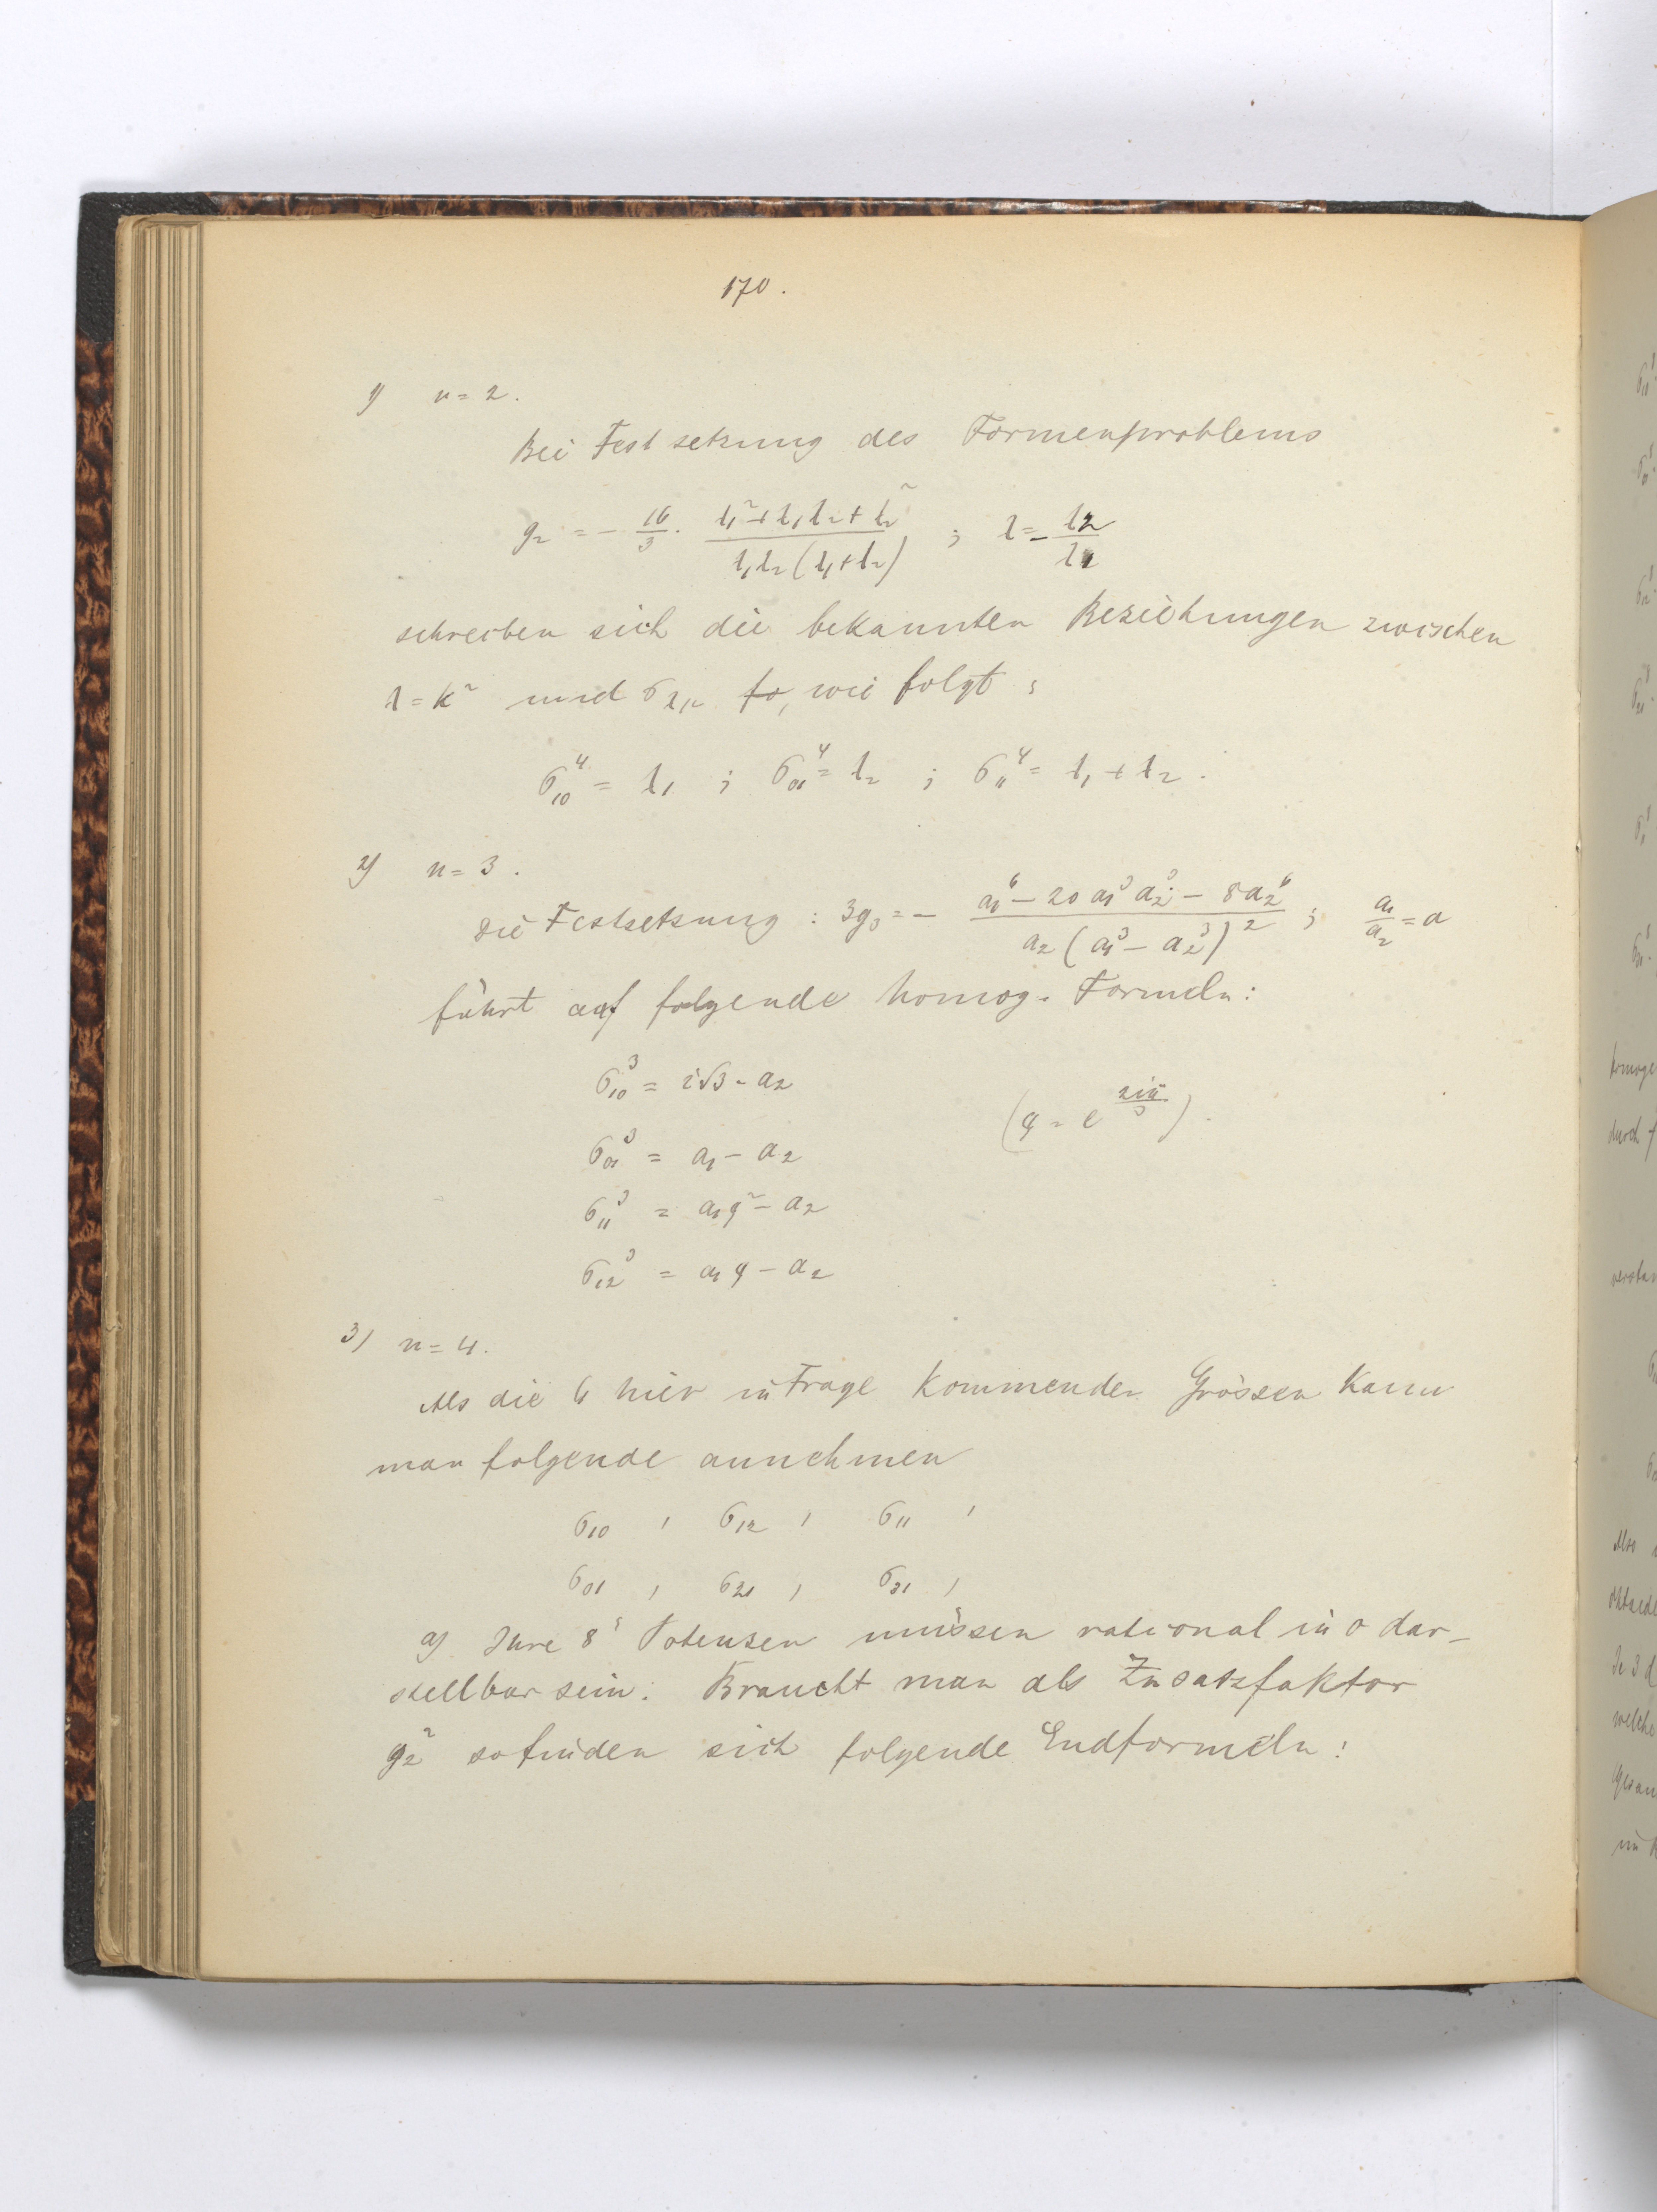 170.
1) n = 2.
Bei Festsetzung des Formenproblems
g₂ = - 16/3 · (λ₁² + λ₁λ₂ + λ₂²) / (λ₁λ₂(λ₁+λ₂)) ; λ = - λ₂/λ₁
schreiben sich die bekannten Beziehungen zwischen
λ = k² und σλμ so, wie folgt :
σ₁₀⁴ = λ₁ ; σ₀₁⁴ = λ₂ ; σ₁₁⁴ = λ₁ + λ₂ .
2) n = 3 .
Die Festsetzung : 3g₃ = - (a₁⁶ - 20 a₁³ a₂³ - 8a₂⁶) / (a₂(a₁³ - a₂³)²) ; a₁/a₂ = a
führt auf folgende homog. Formeln :
σ₁₀³ = i√3 · a₂
(q = e^(2iπ/3)) .
σ₀₁³ = a₁ - a₂
σ₁₁³ = a₁q² - a₂
σ₁₂³ = a₁q - a₂
3) n = 4.
Als die 6 hier in Frage kommenden Grössen kann
man folgende annehmen
σ₁₀ , σ₁₂ , σ₁₁ ,
σ₀₁ , σ₂₁ , σ₃₁ ,
a) Ihre 8ᵗ Potenzen müssen rational in o dar-
stellbar sein. Braucht man als Zusatzfaktor
g₂² so finden sich folgende Endformeln :